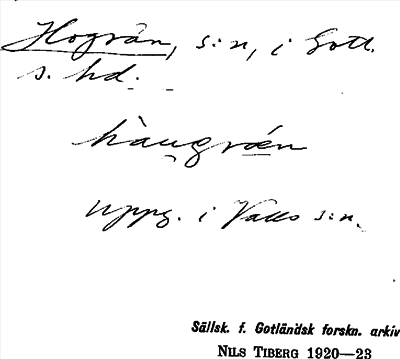 Hogrän, s:n, i Gotl.
s. hd.
hàugræn
uppg. i Valls s:n.
Sällsk. f. Gotländsk forskn. arkiv
NILS TIBERG 1920—23